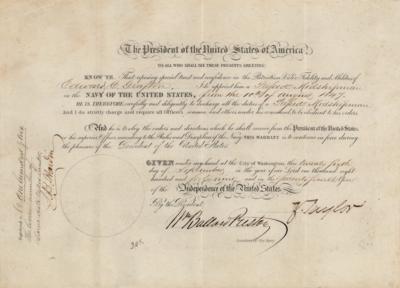 The President of the United States of America
TO ALL WHO SHALL SEE THESE PRESENTS GREETING:
KNOW YE That reposing special trust and confidence in the Patriotism Valor Fidelity and Abilities of
Edward C. Grafton I do appoint him a Passed Midshipman
in the NAVY OF THE UNITED STATES, from the 10th of August 1847.
HE IS THEREFORE carefully and diligently to discharge all the duties of a Passed Midshipman
And I do strictly charge and require all officers seamen and others under his command to be obedient to his orders
And he is to obey the orders and directions which he shall receive from the President of the United States,
or his superior officer according to the Rules and Discipline of the Navy THIS WARRANT to continue in force during
the pleasure of the President of the United States
GIVEN under my hand at the City of Washington this twenty fifth
day of September in the year of our Lord one thousand eight
hundred and forty nine and in the seventy fourth Year
of the Independence of the United States.
By the President
Z. Taylor
Wm Ballard Preston
Secretary of the Navy